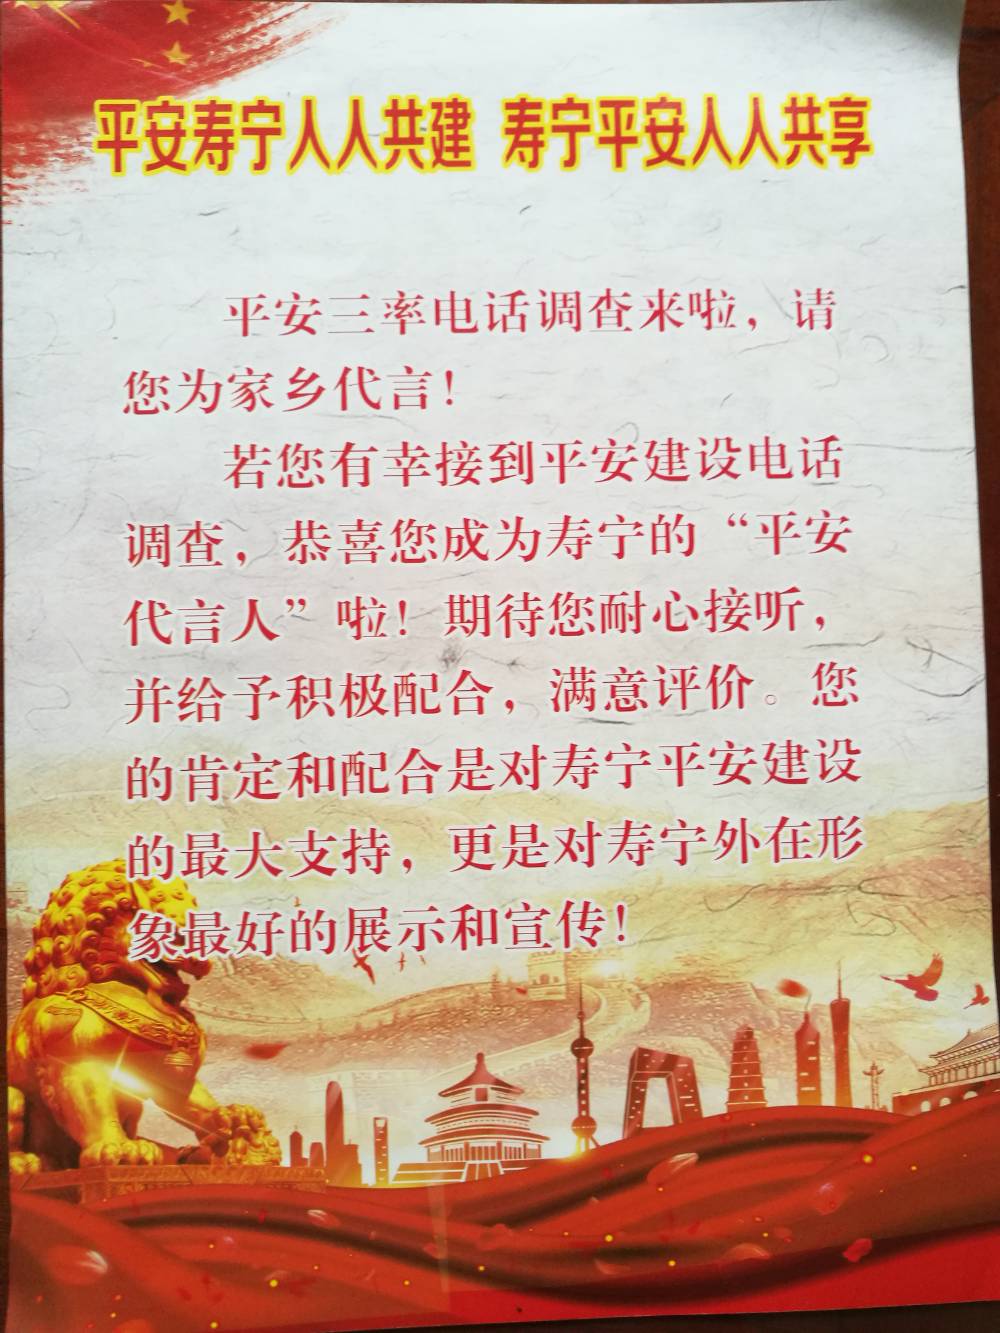 平安寿宁人人共建 寿宁平安人人共享
平安三率电话调查来啦，请
您为家乡代言！
若您有幸接到平安建设电话
调查，恭喜您成为寿宁的“平安
代言人”啦！期待您耐心接听，
并给予积极配合，满意评价。您
的肯定和配合是对寿宁平安建设
的最大支持，更是对寿宁外在形
象最好的展示和宣传！